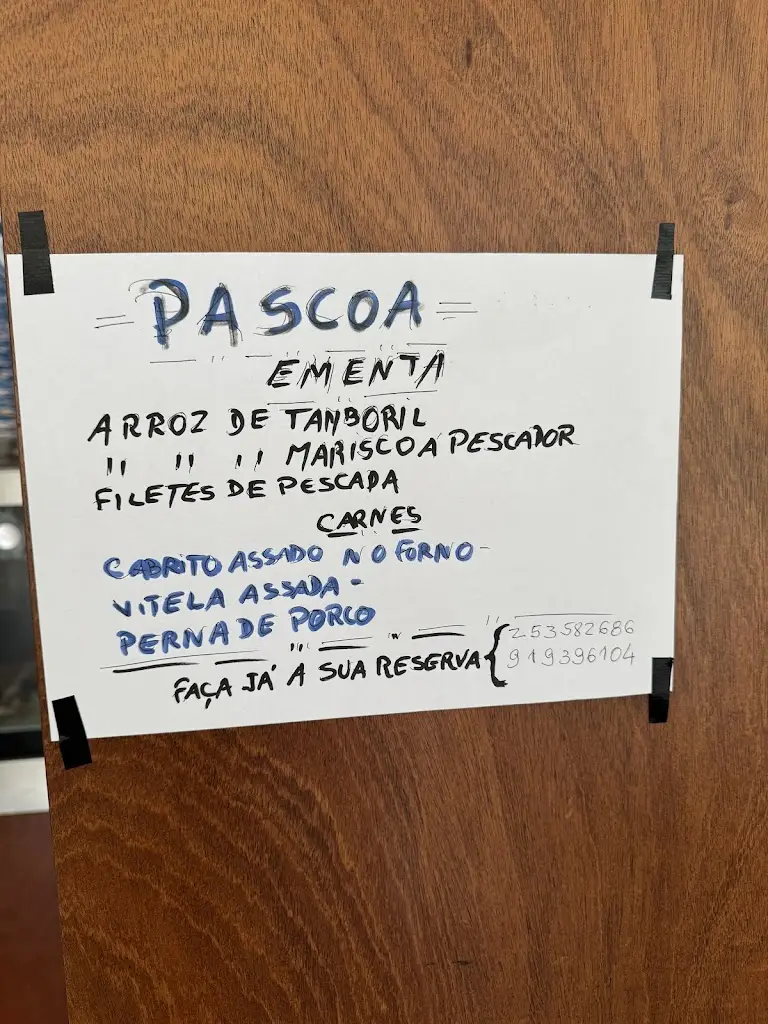 = PASCOA =
EMENTA
ARROZ DE TAMBORIL
" " " MARISCO A PESCADOR
FILETES DE PESCADA
CARNES
CABRITO ASSADO NO FORNO -
VITELA ASSADA -
PERNA DE PORCO
FAÇA JÁ A SUA RESERVA { 253582686
919396104